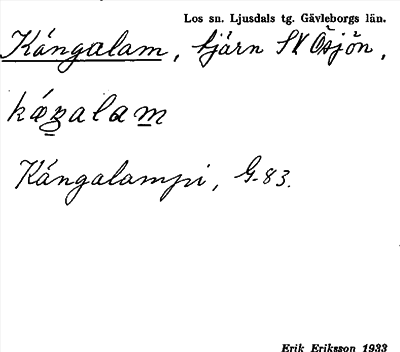 Los sn. Ljusdals tg. Gävleborgs län.
Kángalam, tjärn SV Ösjön,
kaŋalam
Kángalampi, G-83.
Erik Eriksson 1933